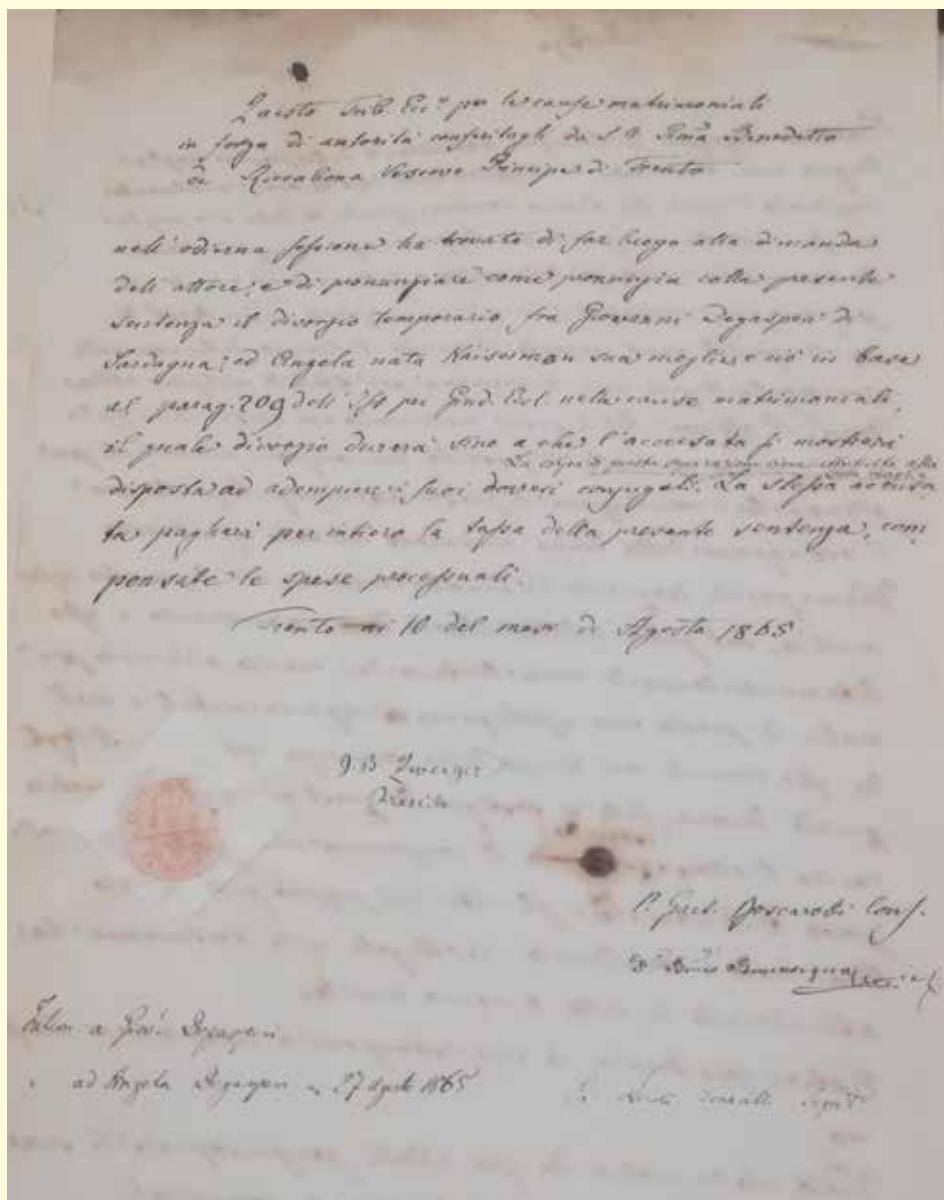 Questo Trib. Ecc.º per le cause matrimoniali
in forza di autorità conferitagli da S. A. Rma Benedetto
de Riccabona Vescovo Principe di Trento
nell' odierna sessione ha trovato di far luogo alla dimanda
dell' attore, e di pronunziare come pronunzia colla presente
sentenza il divorzio temporario fra Giovanni Degasperi di
Sardagna, ed Angela nata Kaiserman sua moglie e ciò in base
al parag. 209 dell' Ist. pei Giud. Eccl. nelle cause matrimoniali,
il quale divorzio durerà sino a che l'accusata si mostrerà
La colpa di questa separazione viene attribuita alla
disposta ad adempiere i suoi doveri conjugali. La stessa accusa
ta pagherà per intiero la tassa della presente sentenza, com
pensate le spese processuali.
Trento ai 16 del mese di Agosto 1865.
G. B. Zwerger
Preside
Boscarolli Cons.
a Giov. Degasperi
ad Angela Degasperi 27 Agosto 1865